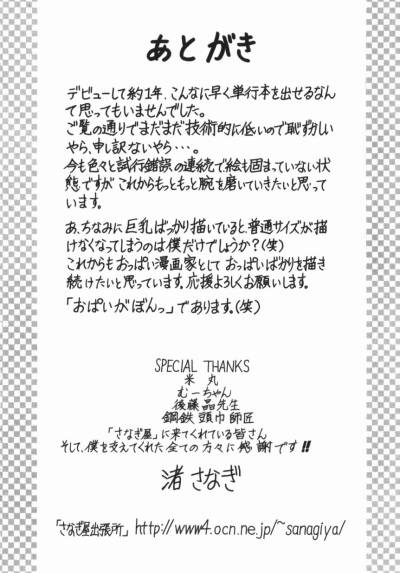 あとがき
デビューして約1年、こんなに早く単行本を出せるなん
て思ってもいませんでした。
ご覧の通りでまだまだ技術的に低いので恥ずかしい
やら、申し訳ないやら・・・。
今も色々と試行錯誤の連続で絵も固まっていない状
態ですが これからもっともっと腕を磨いていきたいと思って
います。
あ、ちなみに巨乳ばっかり描いていると、普通サイズが描
けなくなってしまうのは僕だけでしょうか?(笑)
これからもおっぱい漫画家として おっぱいばかりを描き
続けたいと思っています。応援よろしくお願いします。
「おぱいがぼんっ」であります。(笑)
SPECIAL THANKS
米 丸
むーちゃん
後藤晶先生
鋼鉄 頭巾 師匠
「さなぎ屋」に来てくれている皆さん
そして、僕を支えてくれた全ての方々に感謝です!!
渚 さなぎ
「さなぎ屋出張所」 http://www4.ocn.ne.jp/~sanagiya/